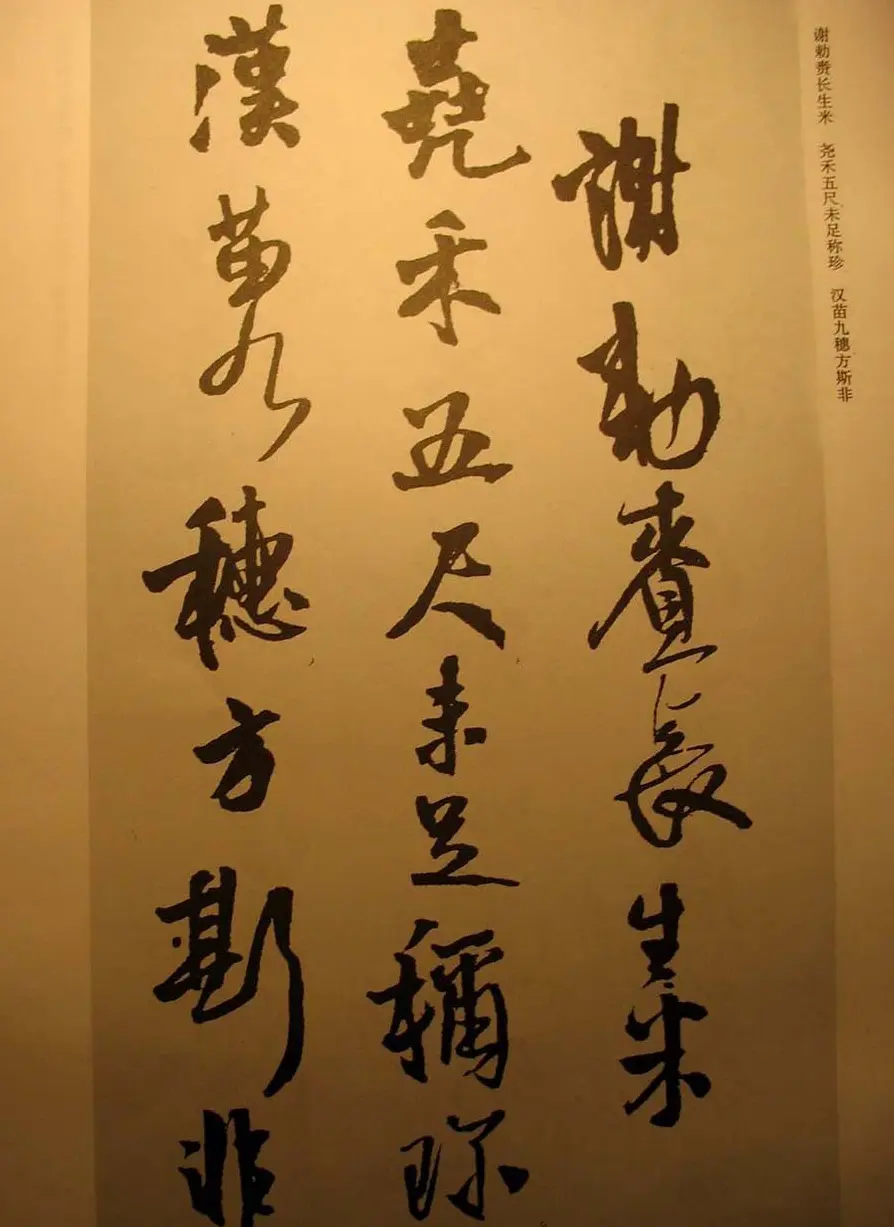 谢勅赉长生米 尧禾五尺未足称珍 汉苗九穗方斯非
謝勅賚長生米
堯禾五尺未足稱珍
漢苗九穗方斯非